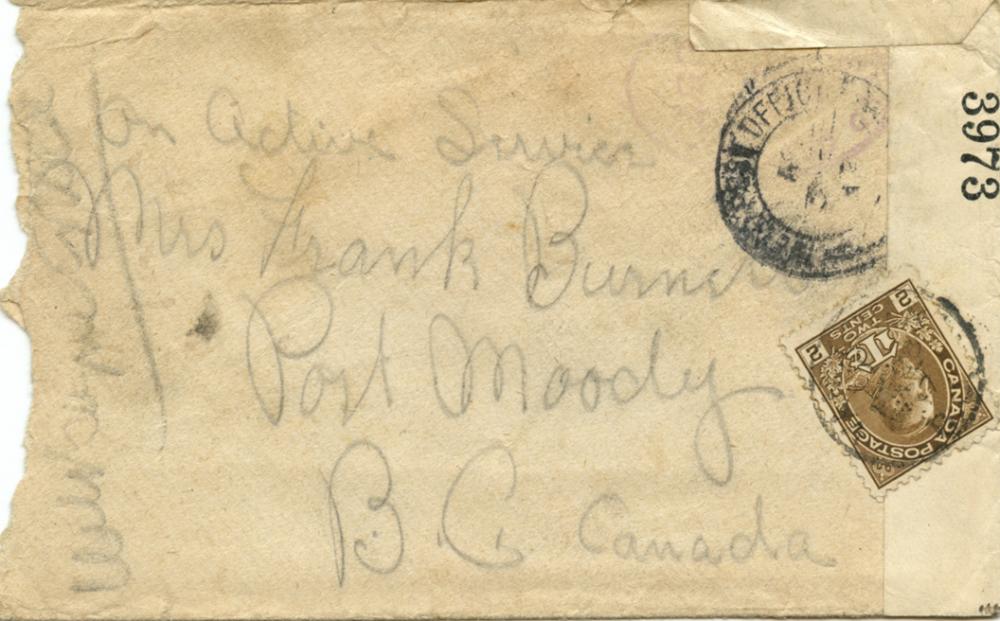 On Active Service
Mrs Frank Burners
Port Moody
B C. Canada
3973
OFFICE
2 TWO CENTS 2
1Tc
CANADA POSTAGE